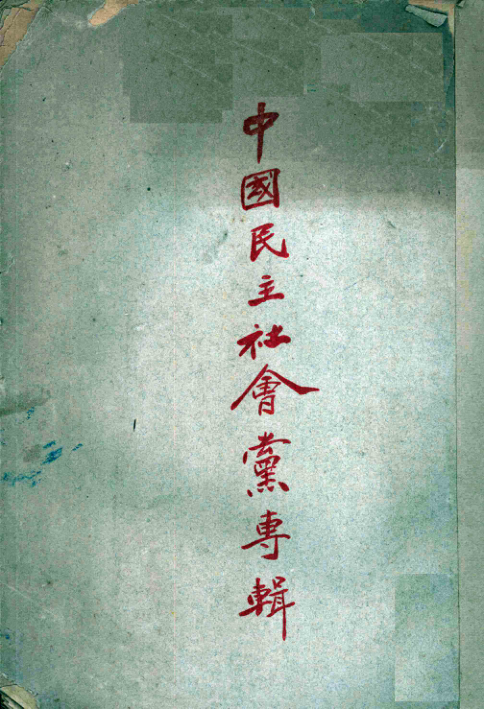 中國民主社會黨專輯